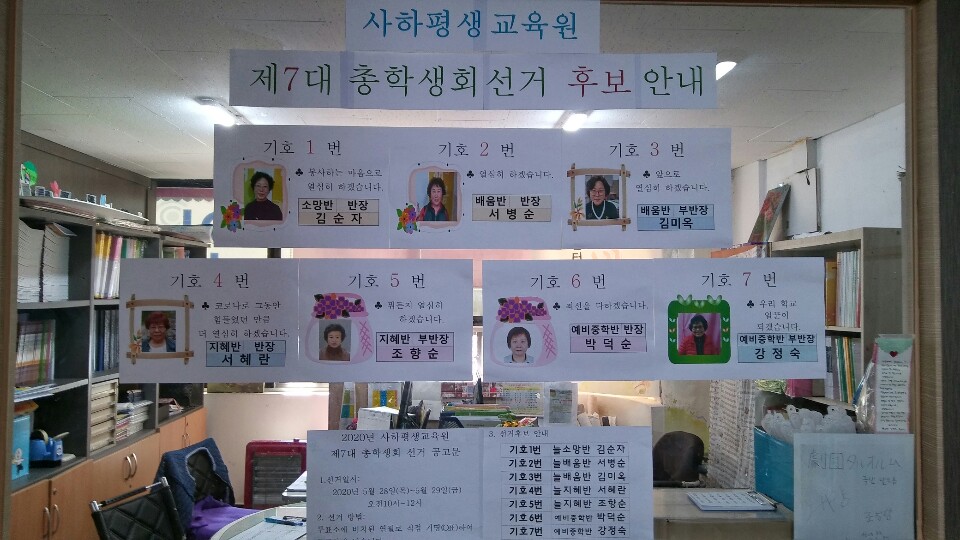 사하평생교육원
제7대 총학생회선거 후보 안내
기호 1 번
♣ 봉사하는 마음으로
열심히 하겠습니다.
소망반 반장
김순자
기호 2 번
♣ 열심히 하겠습니다.
배움반 반장
서병순
기호 3 번
♣ 앞으로
열심히 하겠습니다.
배움반 부반장
김미옥
기호 4 번
♣ 코로나로 그동안
힘들었던 만큼
더 열심히 하겠습니다.
지혜반 반장
서혜란
기호 5 번
♣ 뭐든지 열심히
하겠습니다.
지혜반 부반장
조향순
기호 6 번
♣ 최선을 다하겠습니다.
예비중학반 반장
박덕순
기호 7 번
♣ 우리 학교
일꾼이
되겠습니다.
예비중학반 부반장
강정숙
2020년 사하평생교육원
제7대 총학생회 선거 공고문
1.선거일시:
2020년 5월 28일(목)~5월 29일(금)
오전10시~12시
2. 선거 방법:
투표소에 비치된 연필로 직접 기명(O)하여
3. 선거후보 안내
기호1번 늘소망반 김순자
기호2번 늘배움반 서병순
기호3번 늘배움반 김미옥
기호4번 늘지혜반 서혜란
기호5번 늘지혜반 조향순
기호6번 예비중학반 박덕순
기호7번 예비중학반 강정숙